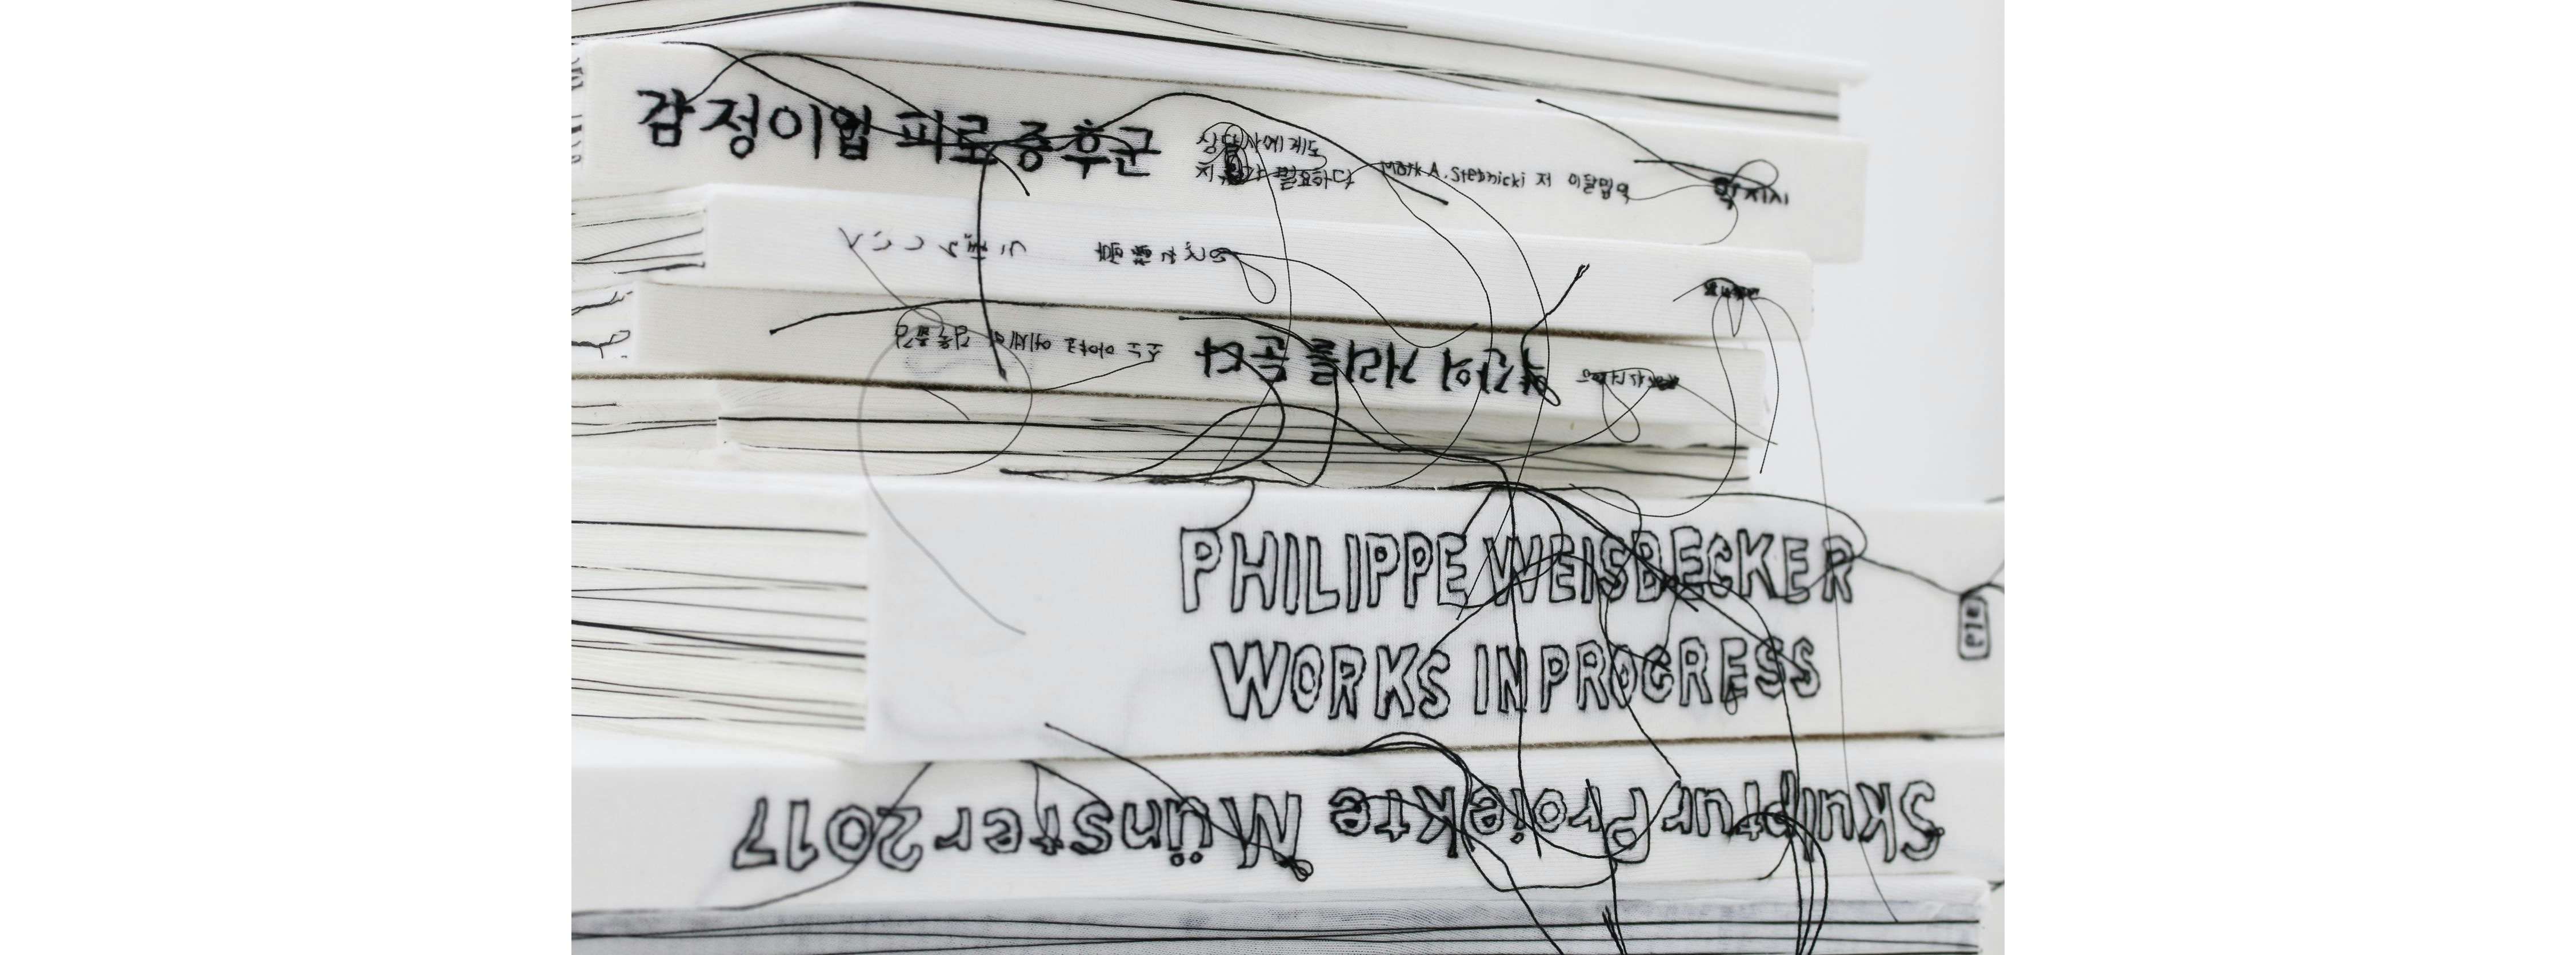 감정이입 피로 증후군
상담사에게도
치유가 필요하다
Mark A. Stebnicki 저 이달밈 역
학지사
약간의 거리를 둔다
소노 아야코 에세이 김욱 옮김
PHILIPPE WEISBECKER
WORKS IN PROGRESS
Skulptur Projekte Münster 2017